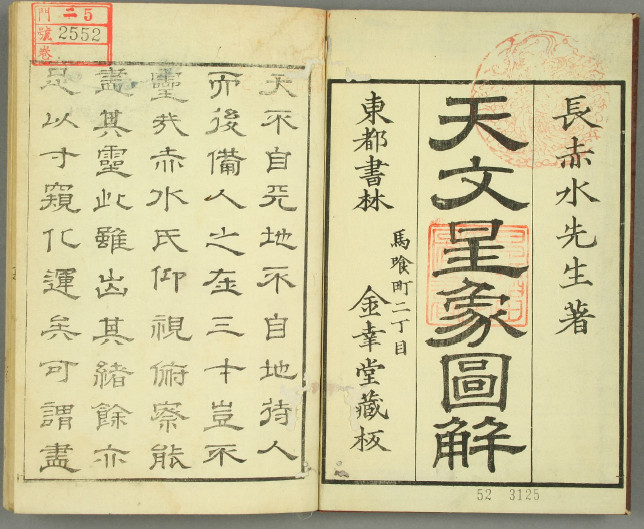 長赤水先生著
天文星象圖解
東都書林
馬喰町二丁目
金幸堂藏板
52 3125
門 二 5
號 2552
卷
天不自天地不自地待人
而後備人之在三才豈不
靈哉赤水氏仰視俯察能
盡其靈此雖出其緒餘亦
足以寸窺化運矣可謂盡